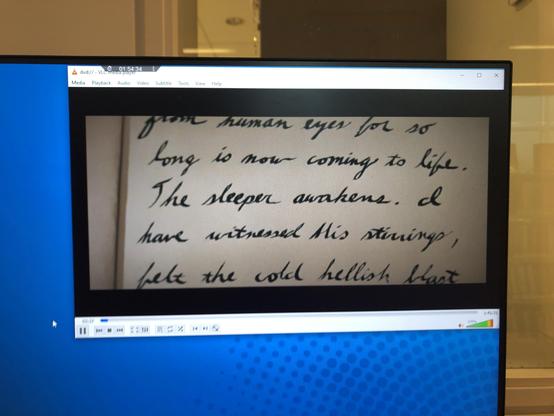 dvd:// - VLC media player
01:54:34
Media Playback Audio Video Subtitle Tools View Help
from human eyes for so
long is now coming to life.
The sleeper awakens. I
have witnessed His stirrings,
felt the cold hellish blast